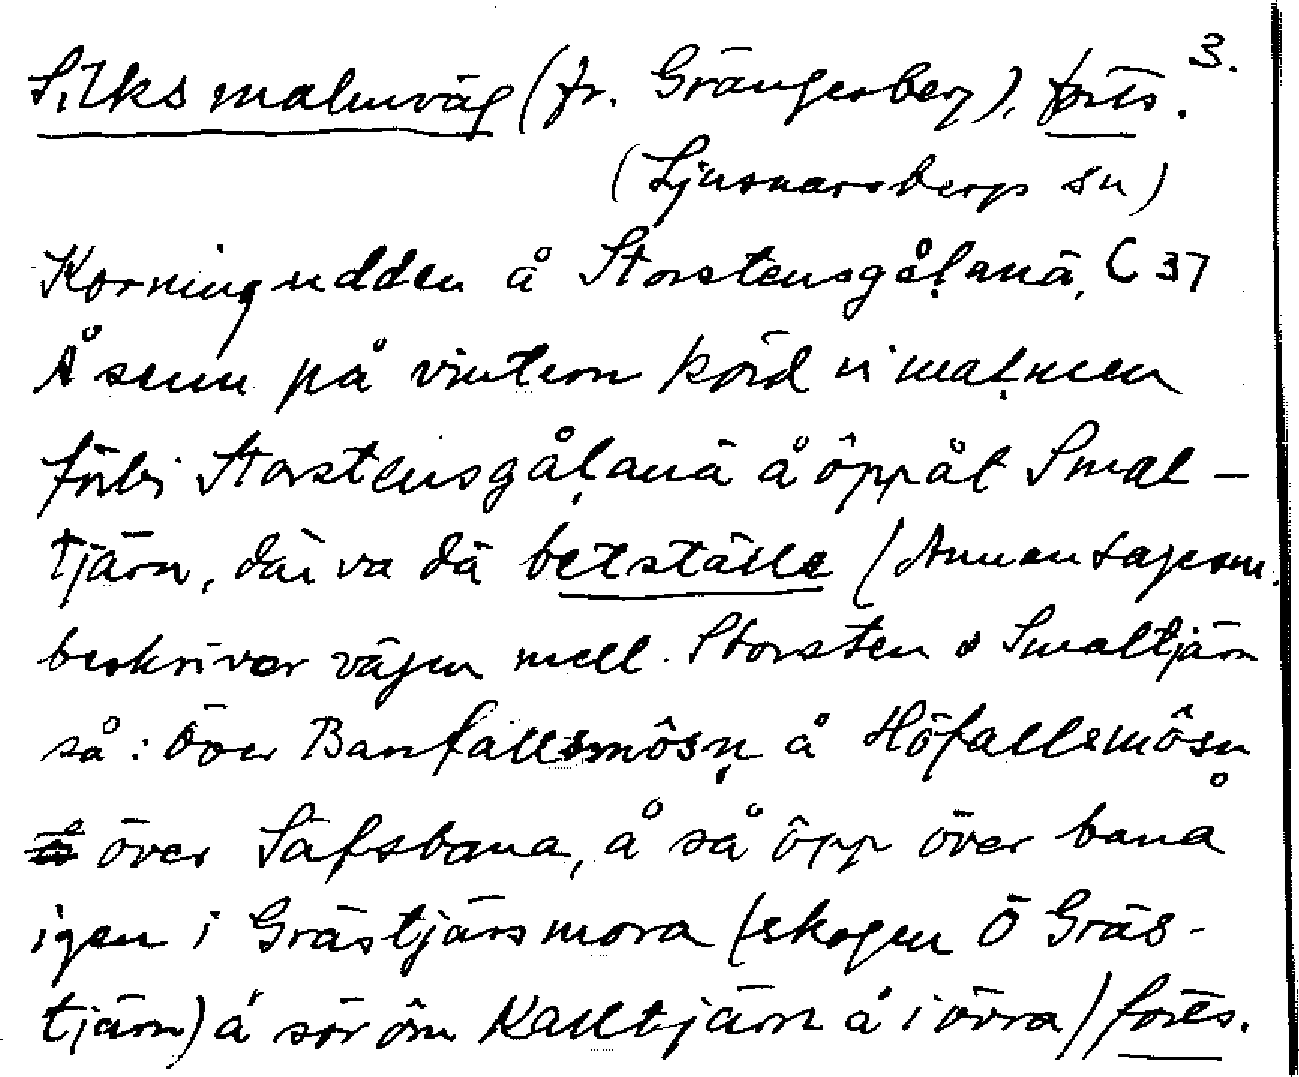 3.
Silksmalmväg (fr. Grängesberg), forts.
(Ljusnarsbergs sn)
Korningudden å Storstensgåḷanä, C 37
Å senn på vintern körd vi maḷmen
förbi Storstensgåḷanä å ôppåt Smal-
tjärn, där va dä betställe (Annan sagesm.
beskriver vägen mell. Storsten o Smaltjärn
så: Över Banfallsmôsṇ å Höfallsmôsn
över Säfsbana, å så ôpp över bana
igen i Grästjärsmora (skogen Ö Gräs-
tjärn) å sör ôm Kalltjärn å i övra) forts.